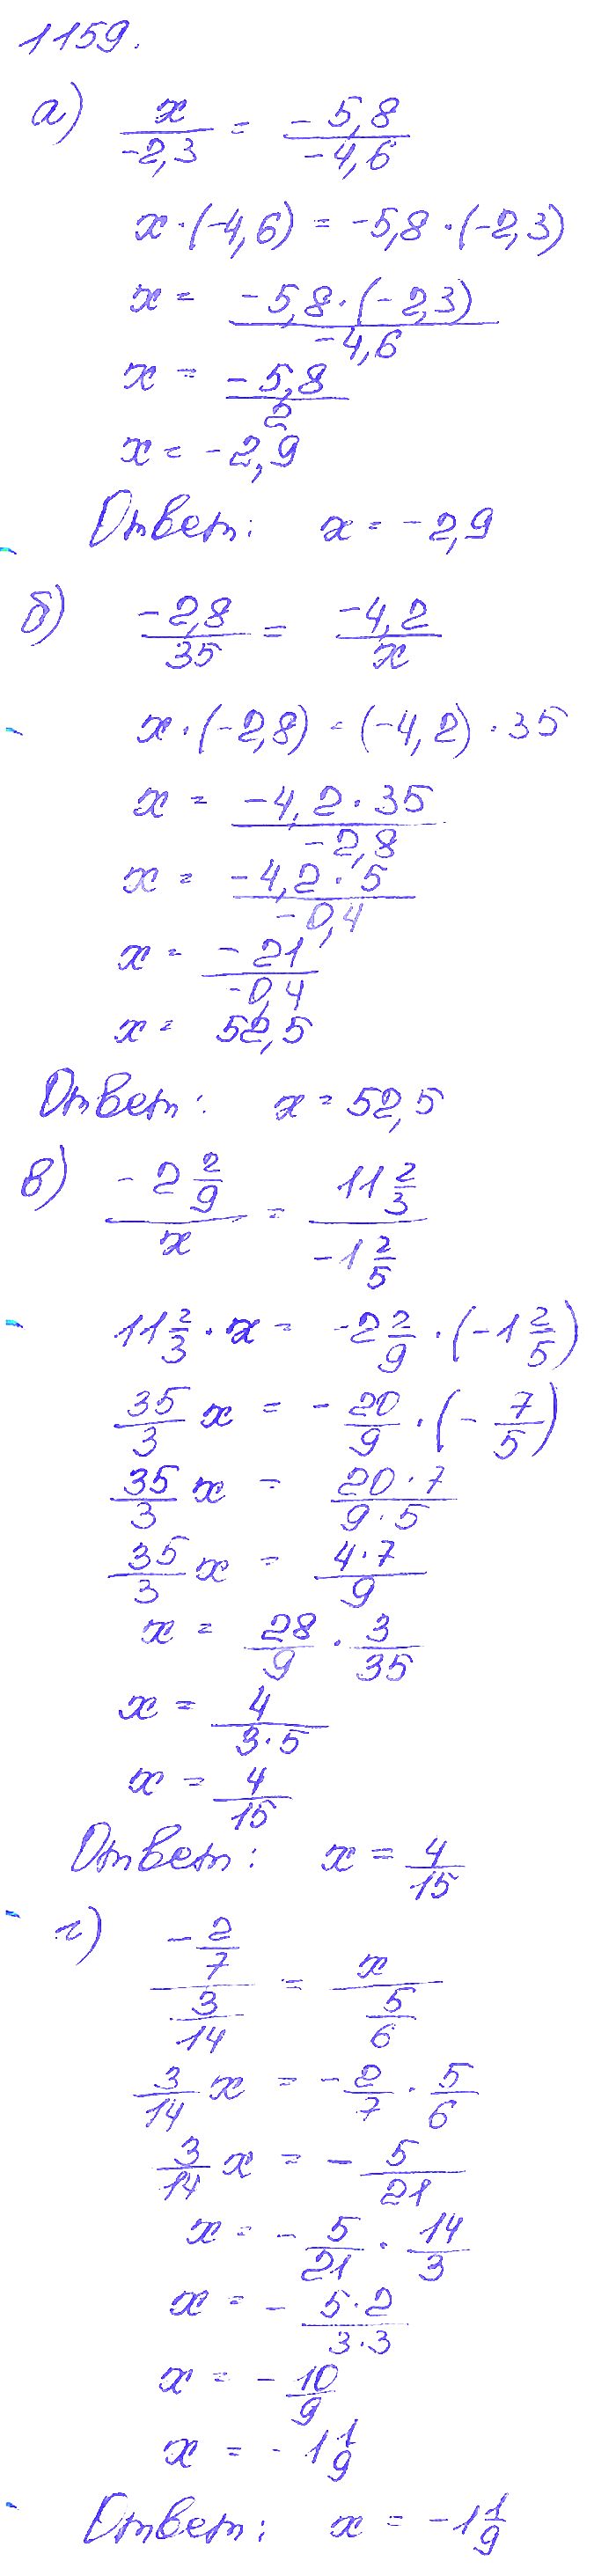 1159.
а) x/-2,3 = -5,8/-4,6
x·(-4,6) = -5,8·(-2,3)
x = -5,8·(-2,3)/-4,6
x = -5,8/2
x = -2,9
Ответ: x = -2,9
б) -2,8/35 = -4,2/x
x·(-2,8) = (-4,2)·35
x = -4,2·35/-2,8
x = -4,2·5/-0,4
x = -21/-0,4
x = 52,5
Ответ: x = 52,5
в) -2 2/9 / x = 11 2/3 / -1 2/5
11 2/3 · x = -2 2/9 · (-1 2/5)
35/3 x = -20/9 · (-7/5)
35/3 x = 20·7/9·5
35/3 x = 4·7/9
x = 28/9 · 3/35
x = 4/3·5
x = 4/15
Ответ: x = 4/15
г) -2/7 / 3/14 = x / 5/6
3/14 x = -2/7 · 5/6
3/14 x = -5/21
x = -5/21 · 14/3
x = -5·2/3·3
x = -10/9
x = -1 1/9
Ответ: x = -1 1/9